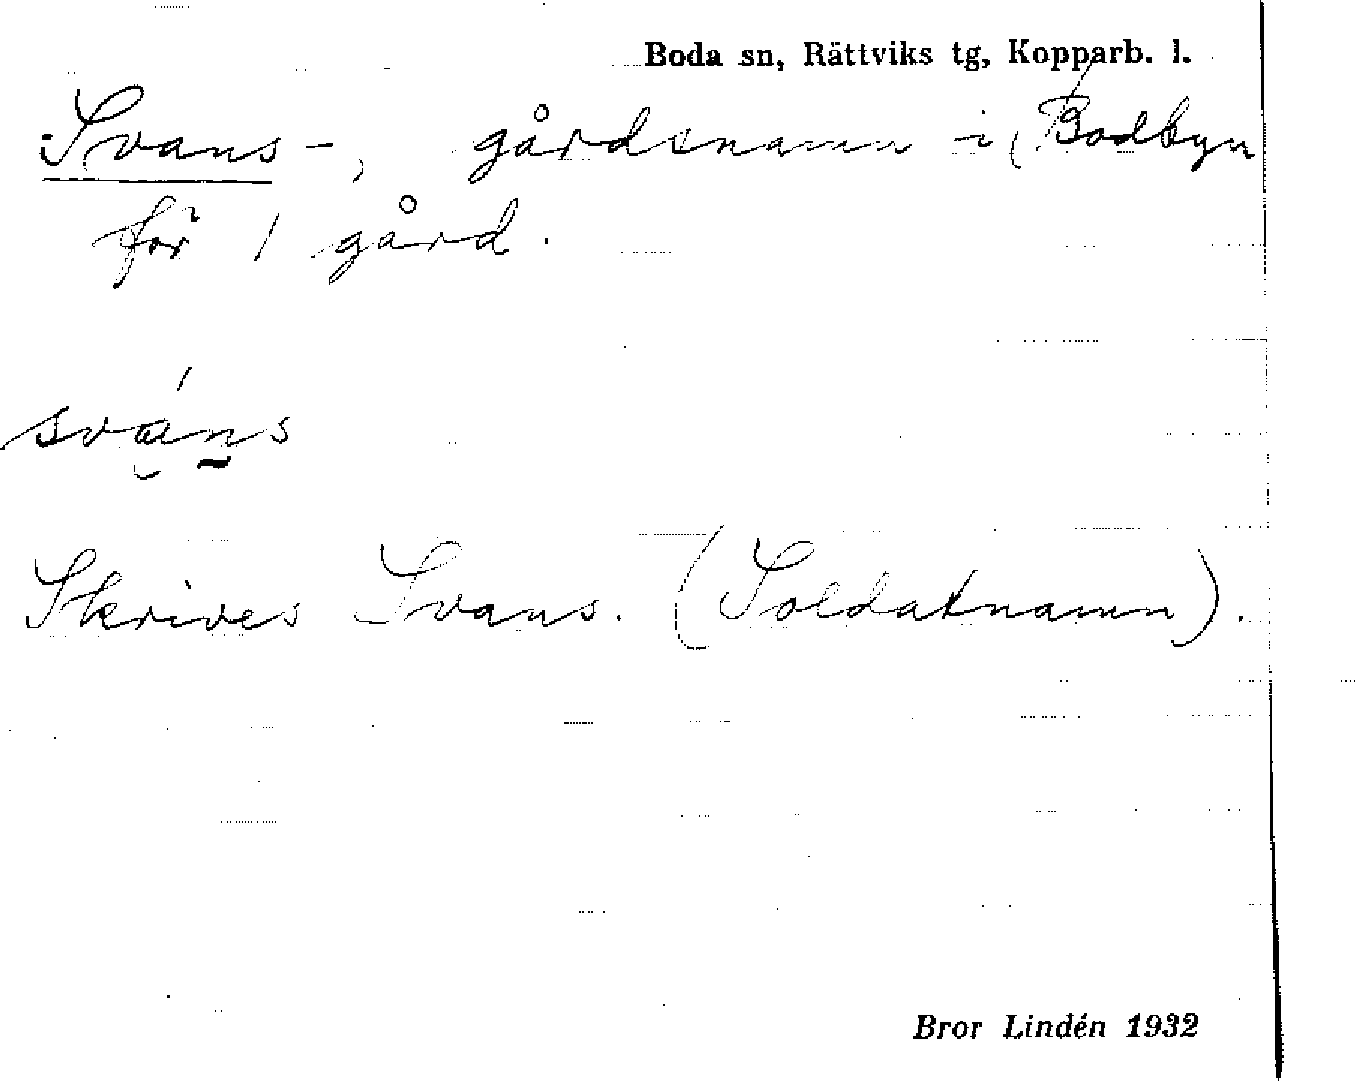 Boda sn, Rättviks tg, Kopparb. l.
Svans-, gårdsnamn i Bodbyn
för 1 gård.
sváns
Skrives Svans. (Soldatnamn).
Bror Lindén 1932